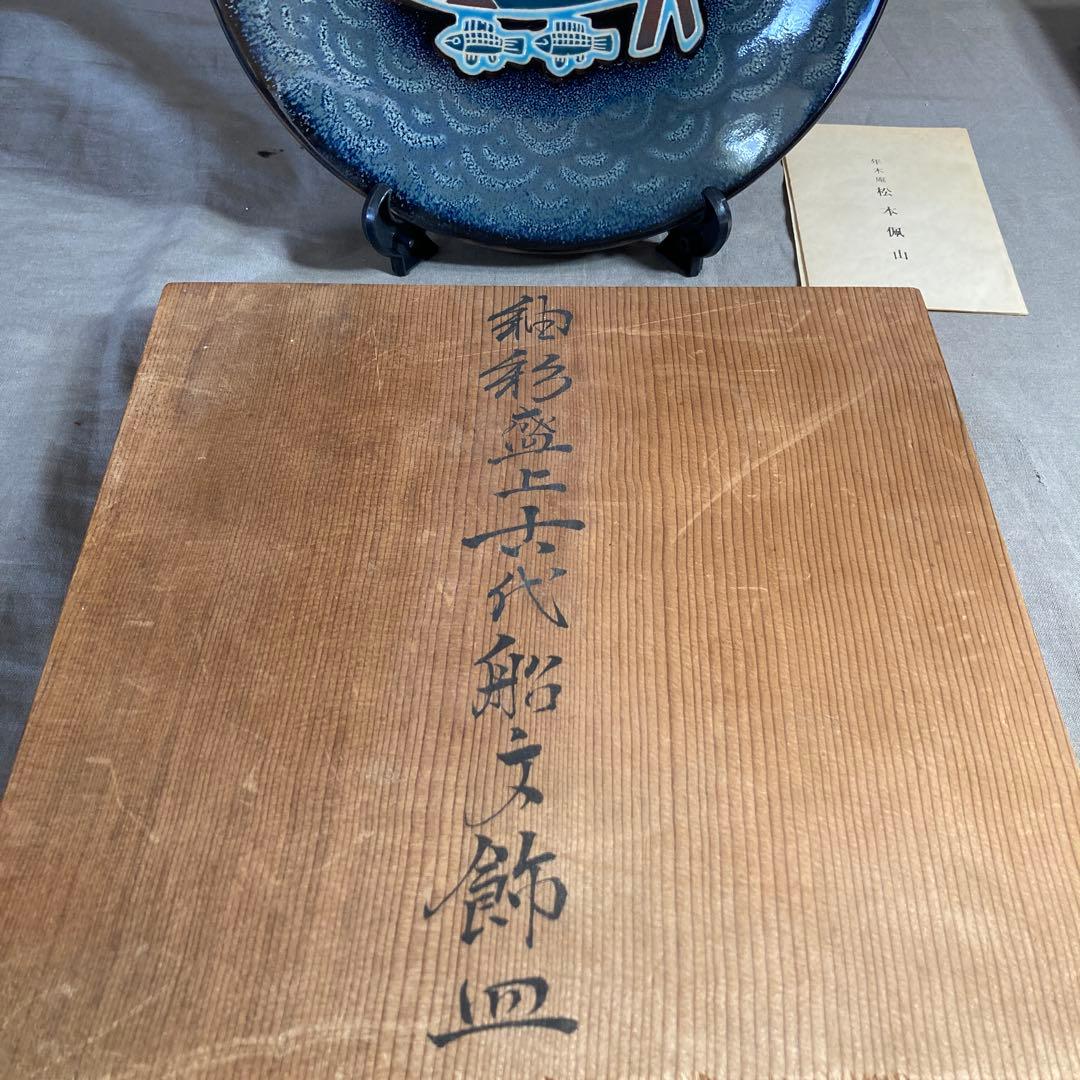 釉彩盛上古代船文飾皿
年木庵 松本佩山